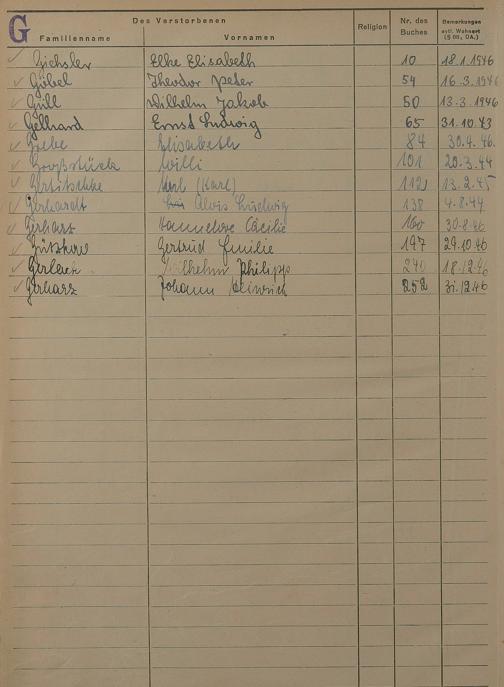 G
Des Verstorbenen
Familienname Vornamen Religion Nr. des Buches Bemerkungen evtl. Wohnort (§ 00, DA.)
Gichsler Elke Elisabeth 10 18.1.1946
Göbel Theodor Peter 54 16.3.1946
Güll Wilhelm Jakob 50 13.3.1946
Gelhard Ernst Ludwig 65 31.10.43
Grebe Elisabeth 84 30.4.46.
Großstück Willi 101 20.3.44
(Karl) 112 13.2.45
Gerhardt Alois Ludwig 138 4.8.44
Gerharz Hannelore Cäcilie 160 30.8.46
Gützkow Gertrud Emilie 197 29.10.46
Gerlach Wilhelm Philipp 240 18.12.46
Gerharz Johann Heinrich 252 31.12.46